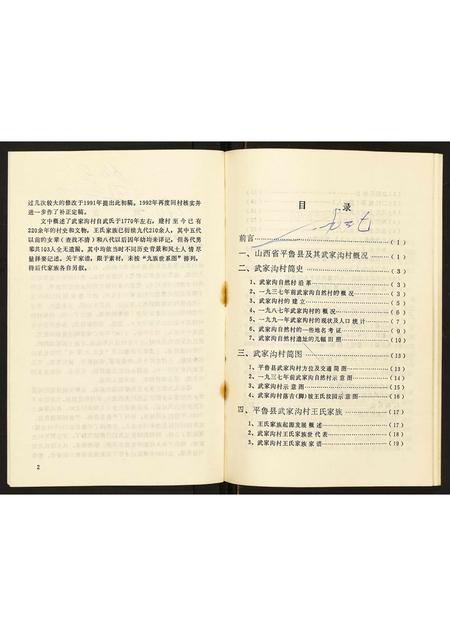 过几次较大的修改于1991年提出此初稿。1992年再度回村核实并
进一步作了补正定稿。
文中概述了武家沟村自武氏于1770年左右，建村至今已有
220余年的村史和文物。王氏家族已衍续九代210余人，其中五代
以前的女辈（查找不清）和八代以后因年幼均未详记。但各代男
辈共103人全无遗漏。其中均依当时不同历史背景和风土人情尽
量择要记述。关于家谱，限于素材，未按“九族世系图”排列，
待后代家族各自另叙。
2
目录
前言（1）
一、山西省平鲁县及其武家沟村概况（1）
二、武家沟村简史（3）
1、武家沟自然村沿革（3）
2、一九三七年前武家沟自然村的概况（3）
3、武家沟村的建立（5）
4、一九八七年武家沟村的概况（6）
5、一九九一年武家沟村的现状及人口统计（7）
6、武家沟自然村的一些地名考证（9）
7、武家沟自然村遗址的几幅旧照（10）
三、武家沟村简图（13）
1、平鲁县武家沟村方位及交通简图（13）
2、一九三七年前武家沟自然村示意图（14）
3、武家沟村示意图（15）
4、武家沟村落吉（脚）坡王氏坟园示意图（16）
四、平鲁县武家沟村王氏家族（17）
1、王氏家族起源发展概述（17）
2、武家沟村王氏家族世代表（18）
3、武家沟村王氏家族家语（19）